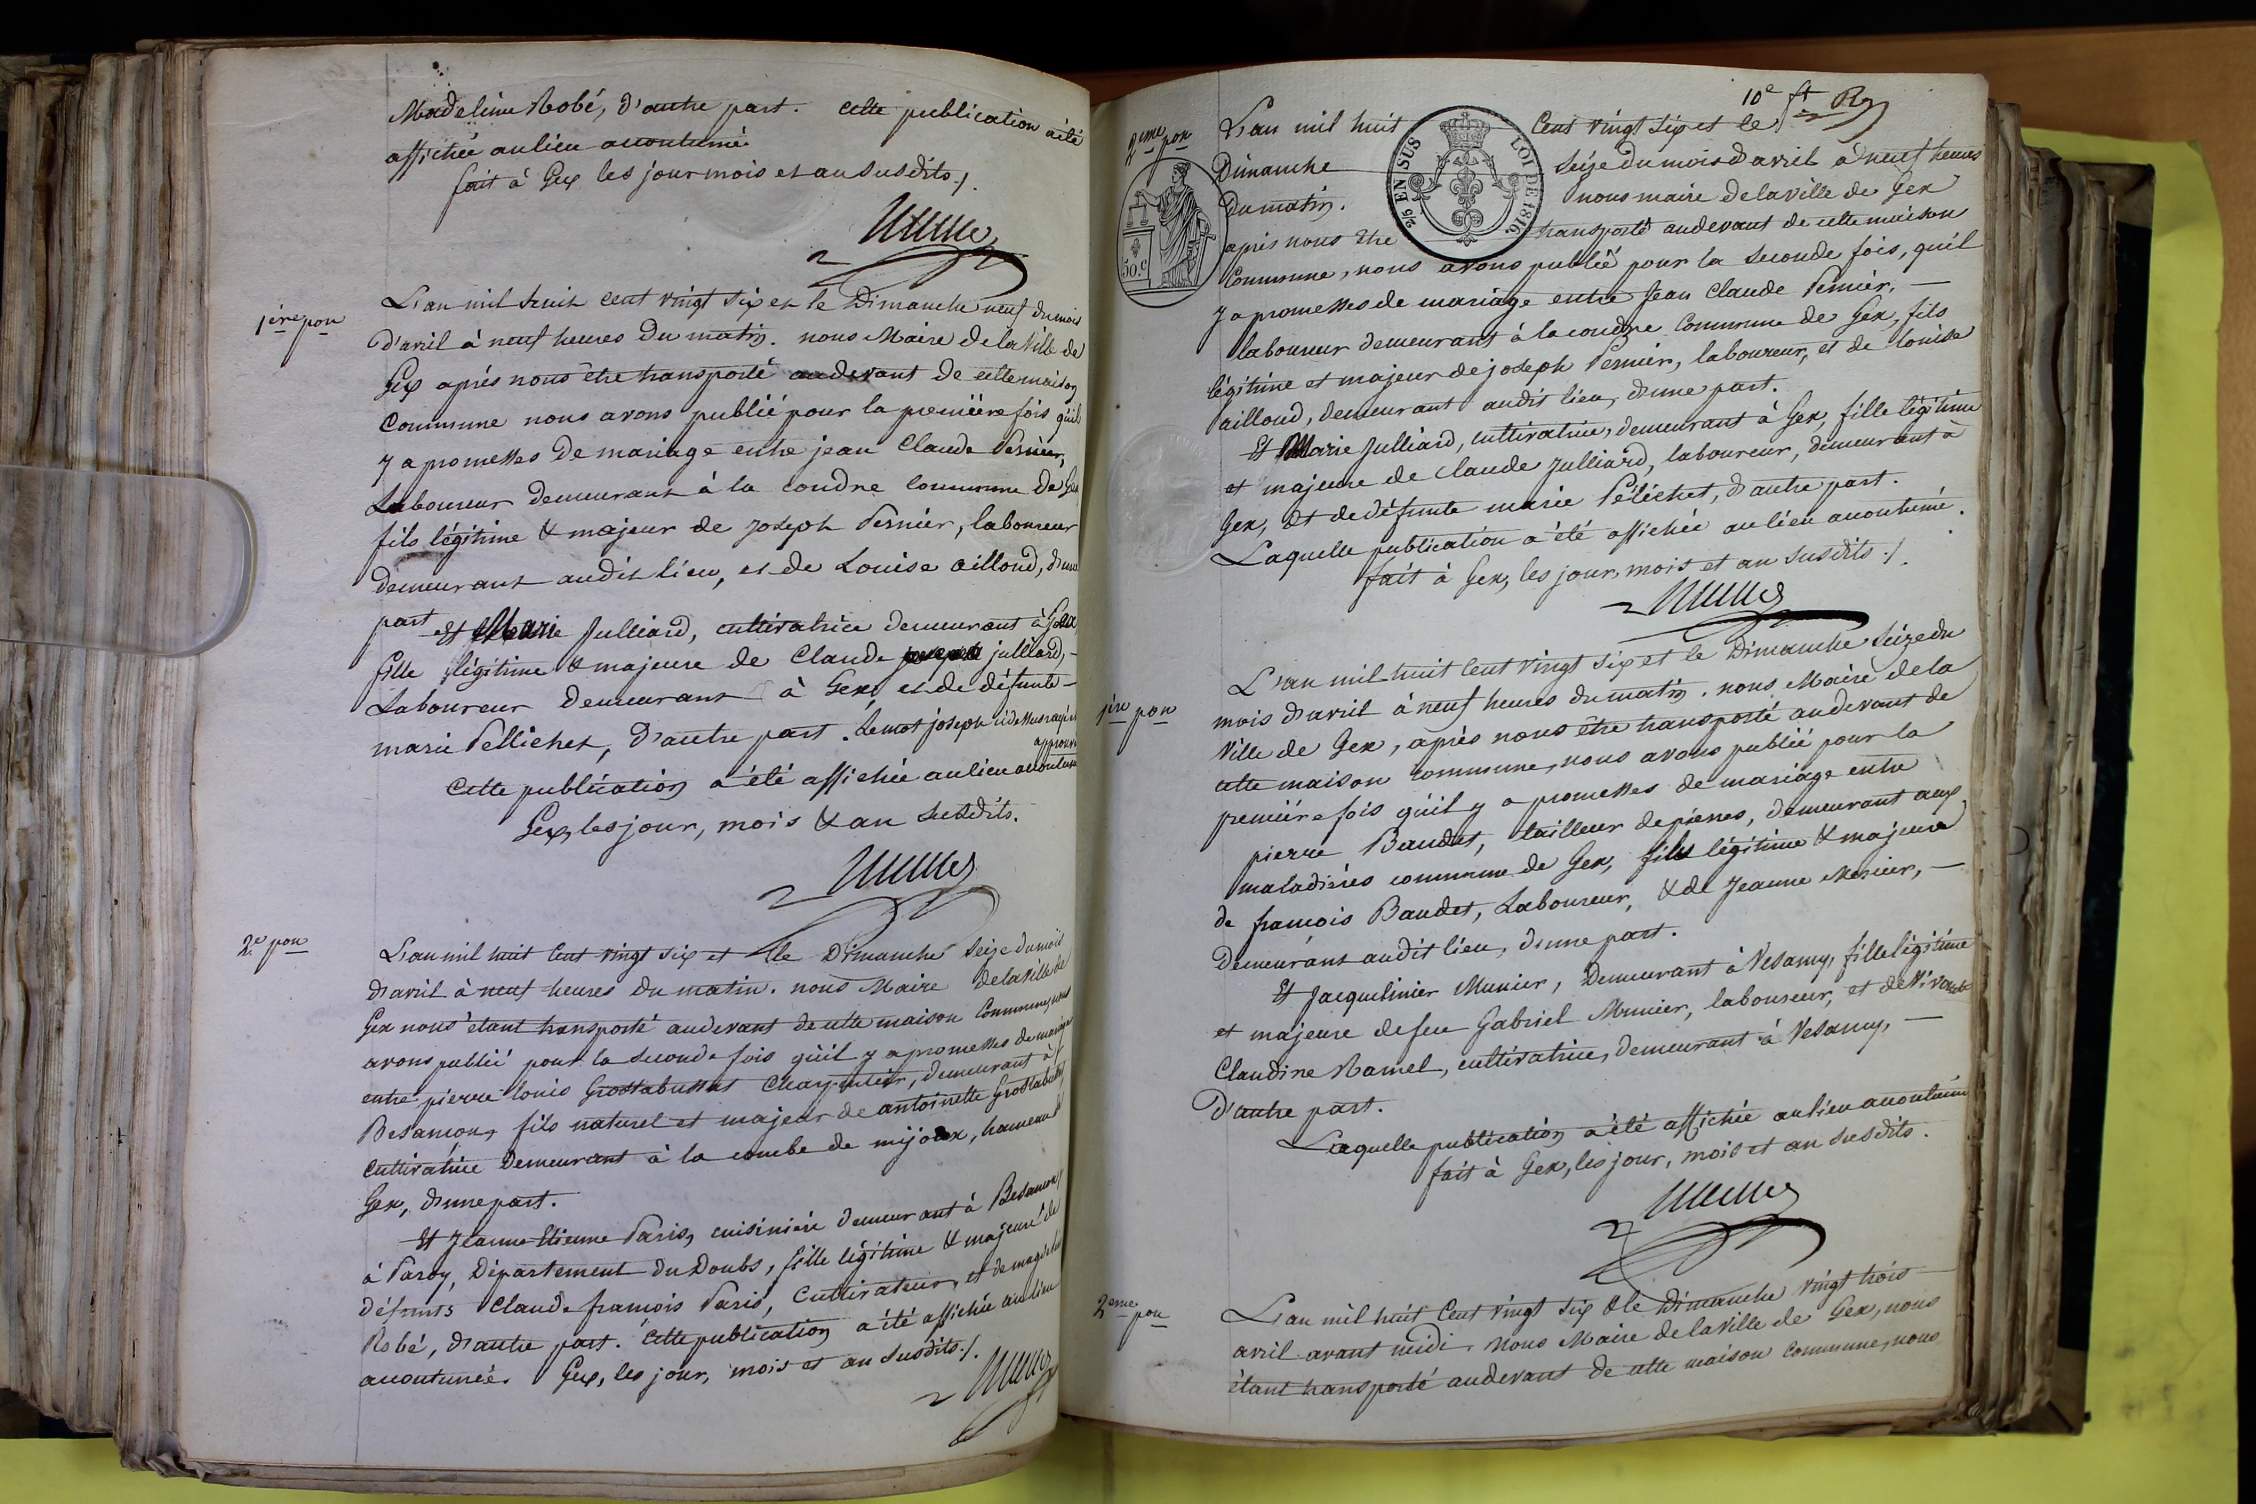 Madeline Robé, d'autre part. Cette publication a été
affichée au lieu accoutumé
fait à Gex les jour mois et an susdits ./.
1ère pon
L'an mil huit cent vingt six et le Dimanche neuf du mois
d'avril à neuf heures du matin. nous Maire de la Ville de
Gex après nous être transporté au devant de cette maison
Commune nous avons publié pour la première fois qu'il
y a promesses de mariage entre jean Claude Pernier,
Laboureur demeurant à la coudre Commune de Gex
fils légitime & majeur de joseph Pernier, laboureur
demeurant audit lieu, et de Louise ailloud, d'une
part
Et Marie Julliard, cultivatrice demeurant à Gex
fille légitime & majeure de Claude joseph julliard, -
Laboureur demeurant à Gex, et de défunte -
marie Pellichet, d'autre part. Le mot joseph ci dessus rayé
approuvé
Cette publication a été affichée au lieu accoutumé
Gex, les jour, mois & an susdits.
2e pon
L'an mil huit Cent vingt six et le Dimanche seize du mois
d'avril à neuf heures du matin. nous Maire de la Ville de
Gex nous étant transporté au devant de cette maison Commune, nous
avons publié pour la seconde fois qu'il y a promesses de mariage
entre pierre louis Grostabussat Charpentier, demeurant à
Besançon, fils naturel et majeur de antoinette Grostabussat
Cultivatrice demeurant à la combe de mijoux, hameau de
Gex, d'une part.
Et Jeanne Etienne Paris, cuisinière demeurant à Besançon
à Paroy, Département du Doubs, fille légitime & majeure de
défunts Claude françois Paris, Cultivateur, et de magdelaine
Robé, d'autre part. Cette publication a été affichée au lieu
accoutumée. Gex, les jour, mois et an susdits ./.
10e ft
2eme pon
L'an mil huit Cent vingt six et le
Dimanche seize du mois d'avril à neuf heures
du matin. nous maire de la ville de Gex
après nous être transporté au devant de cette maison
2/5 EN SUS LOI DE 1816.
50.c
Commune, nous avons publié pour la seconde fois, qu'il
y a promesses de mariage entre Jean Claude Pernier, -
laboureur demeurant à la coudre Commune de Gex, fils
légitime et majeur de joseph Pernier, laboureur, et de louise
ailloud, demeurant audit lieu, d'une part.
Et Marie Julliard, cultivatrice, demeurant à Gex, fille légitime
et majeure de Claude Julliard, laboureur, demeurant à
Gex, et de défunte marie Pélichet, d'autre part.
Laquelle publication a été affichée au lieu accoutumé.
fait à Gex, les jour, mois et an susdits ./.
1ère pon
L'an mil huit Cent vingt six et le Dimanche seize du
mois d'avril à neuf heures du matin. nous Maire de la
Ville de Gex, après nous être transporté au devant de
cette maison commune, nous avons publié pour la
première fois qu'il y a promesses de mariage entre
pierre Baudet, tailleur de pierres, demeurant aux
maladières commune de Gex, fils légitime & majeur
de françois Baudet, Laboureur, & de Jeanne Mercier, -
demeurant audit lieu, d'une part.
Et Jacquelinier Munier, Demeurant à Vesancy, fille légitime
et majeure de feu Gabriel Munier, laboureur, et de vivante
Claudine Ramel, cultivatrice, demeurant à Vesancy, -
d'autre part.
Laquelle publication a été affichée au lieu accoutumé
fait à Gex, les jour, mois et an susdits.
2eme pon
L'an mil huit Cent vingt six & le Dimanche vingt trois
avril avant midi, nous Maire de la ville de Gex, nous
étant transporté au devant de cette maison commune, nous